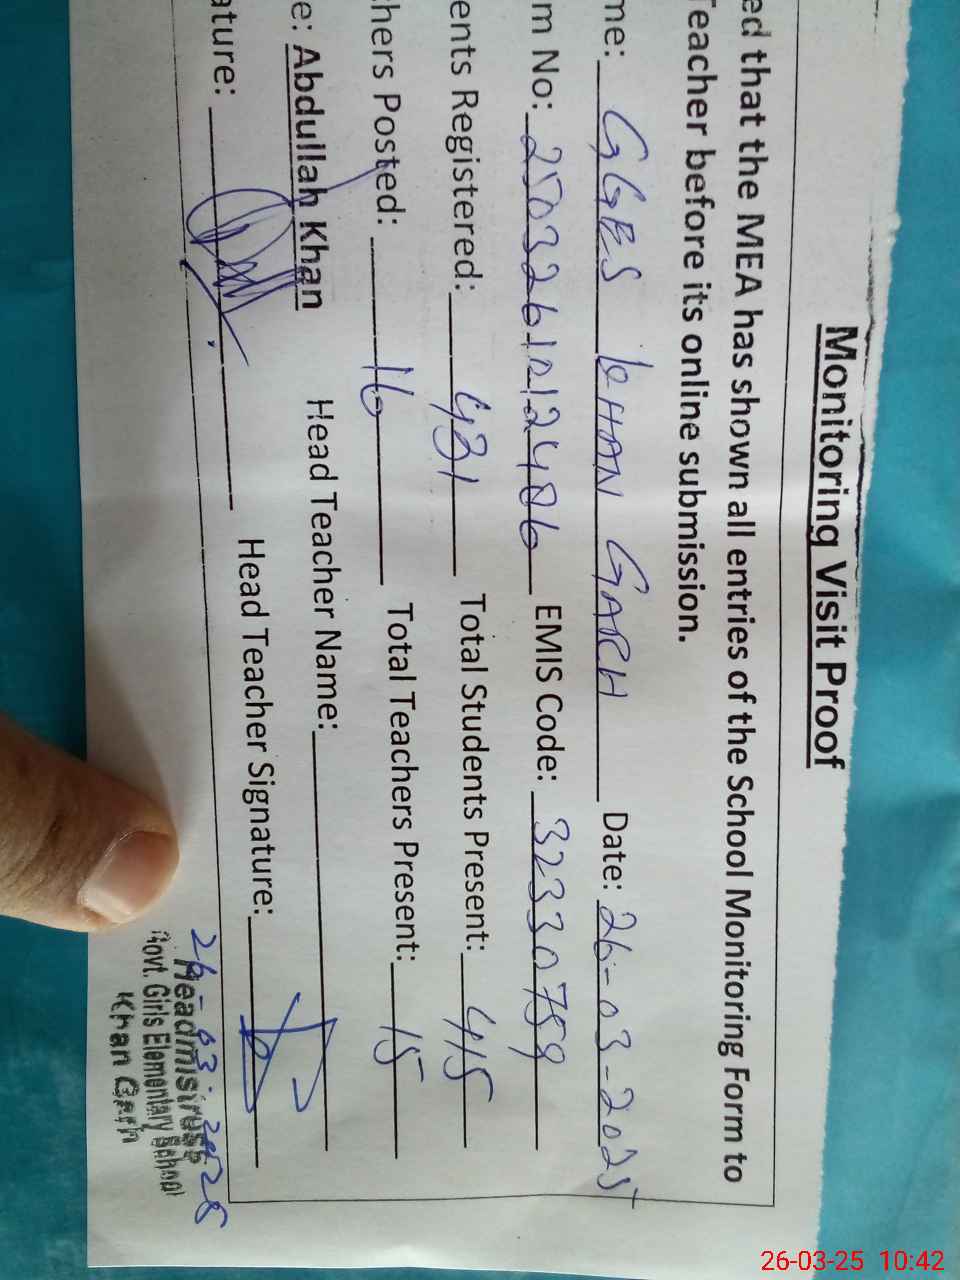 Monitoring Visit Proof
ed that the MEA has shown all entries of the School Monitoring Form to
Teacher before its online submission.
me: GGES KHAN GARH Date: 26-03-2025
m No: 2503261012406 EMIS Code: 32330789
ents Registered: 431 Total Students Present: 415
hers Posted: 16 Total Teachers Present: 15
e: Abdullah Khan Head Teacher Name:
ature: Head Teacher Signature:
26-03-2025
Headmistress
Govt. Girls Elementary School
Khan Garh
26-03-25 10:42